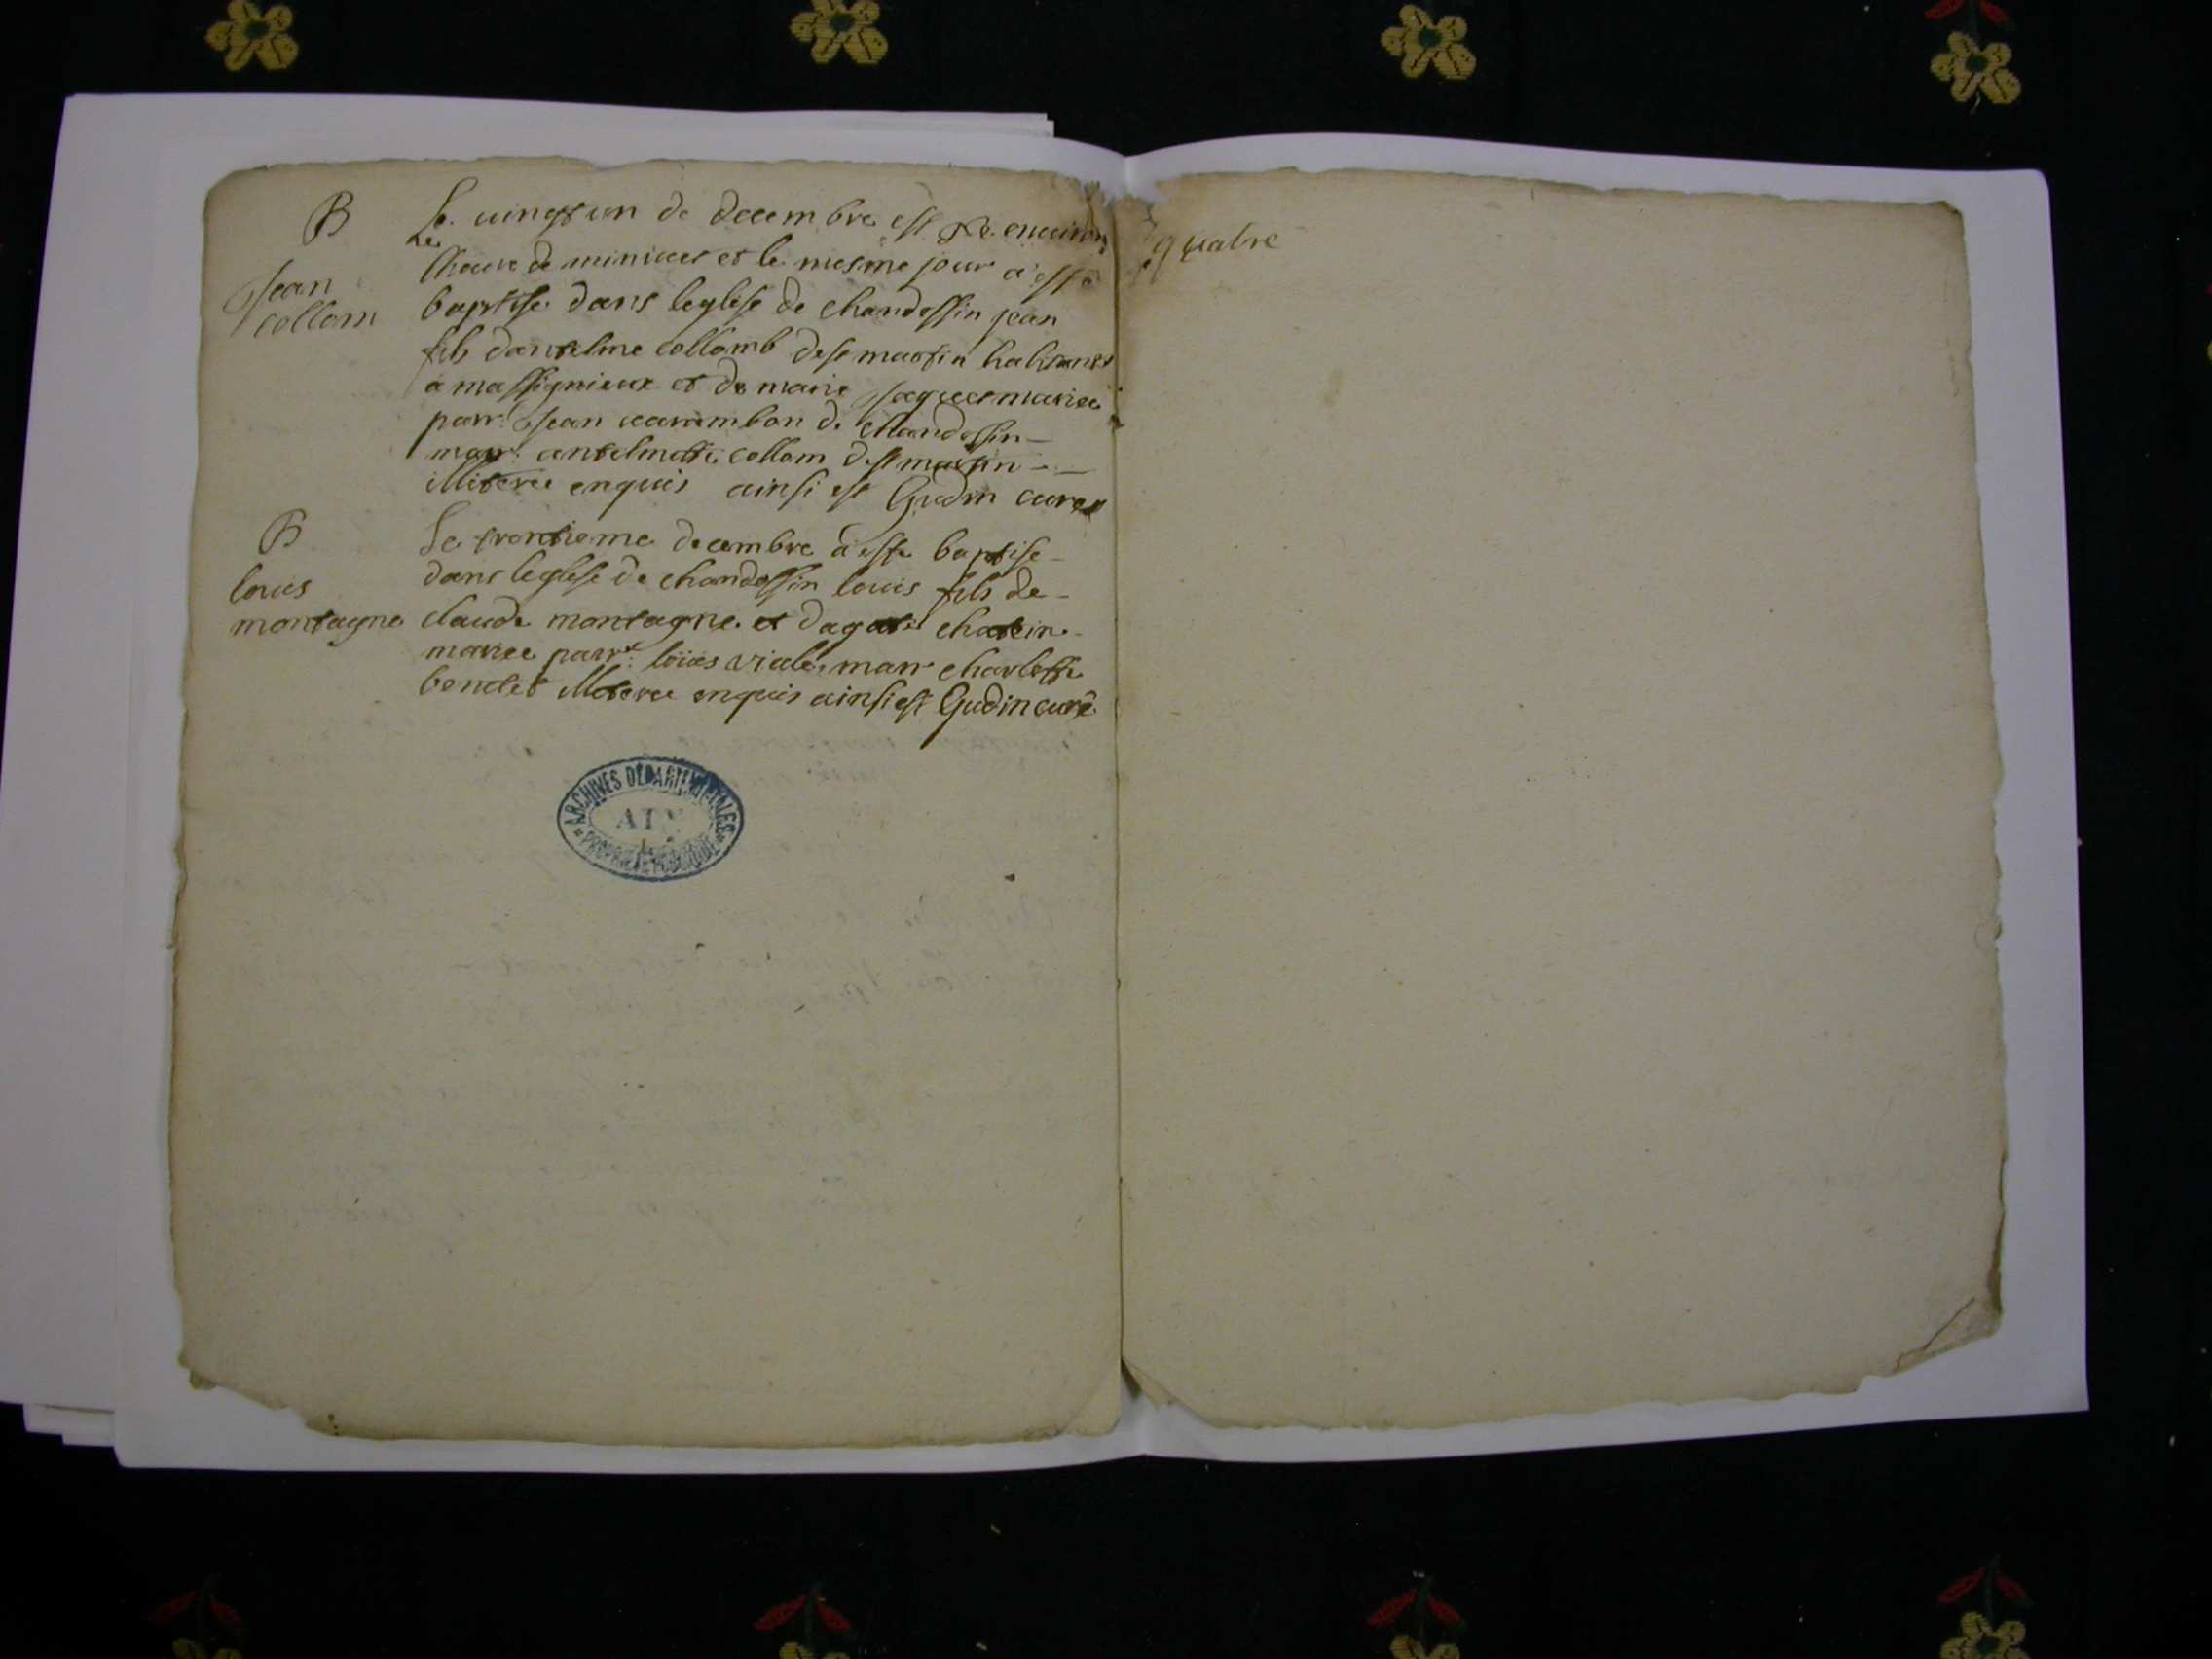 B
Jean
Collom
Le vingt un de decembre est né environ
lheure de minuict et le mesme jour a esté
baptisé dans leglise de chandossin jean
fils dantelme collomb de st martin habitant
a massignieux et de marie jaquet mariee
parr. Jean de chandossin
marr. antelmette collom de st martin
illiteree enquis ainsi est Gudin curé
B
louis
montagne
Le trentieme decembre a esté baptisé
dans leglise de chandossin louis fils de
claude montagne et dagate chatein
mariee parr. loüis viale marr charlotte
illiteree enquis ainsi est Gudin curé
quatre
ARCHIVES DÉPARTEMENTALES
AIN
PROPRIÉTÉ PUBLIQUE